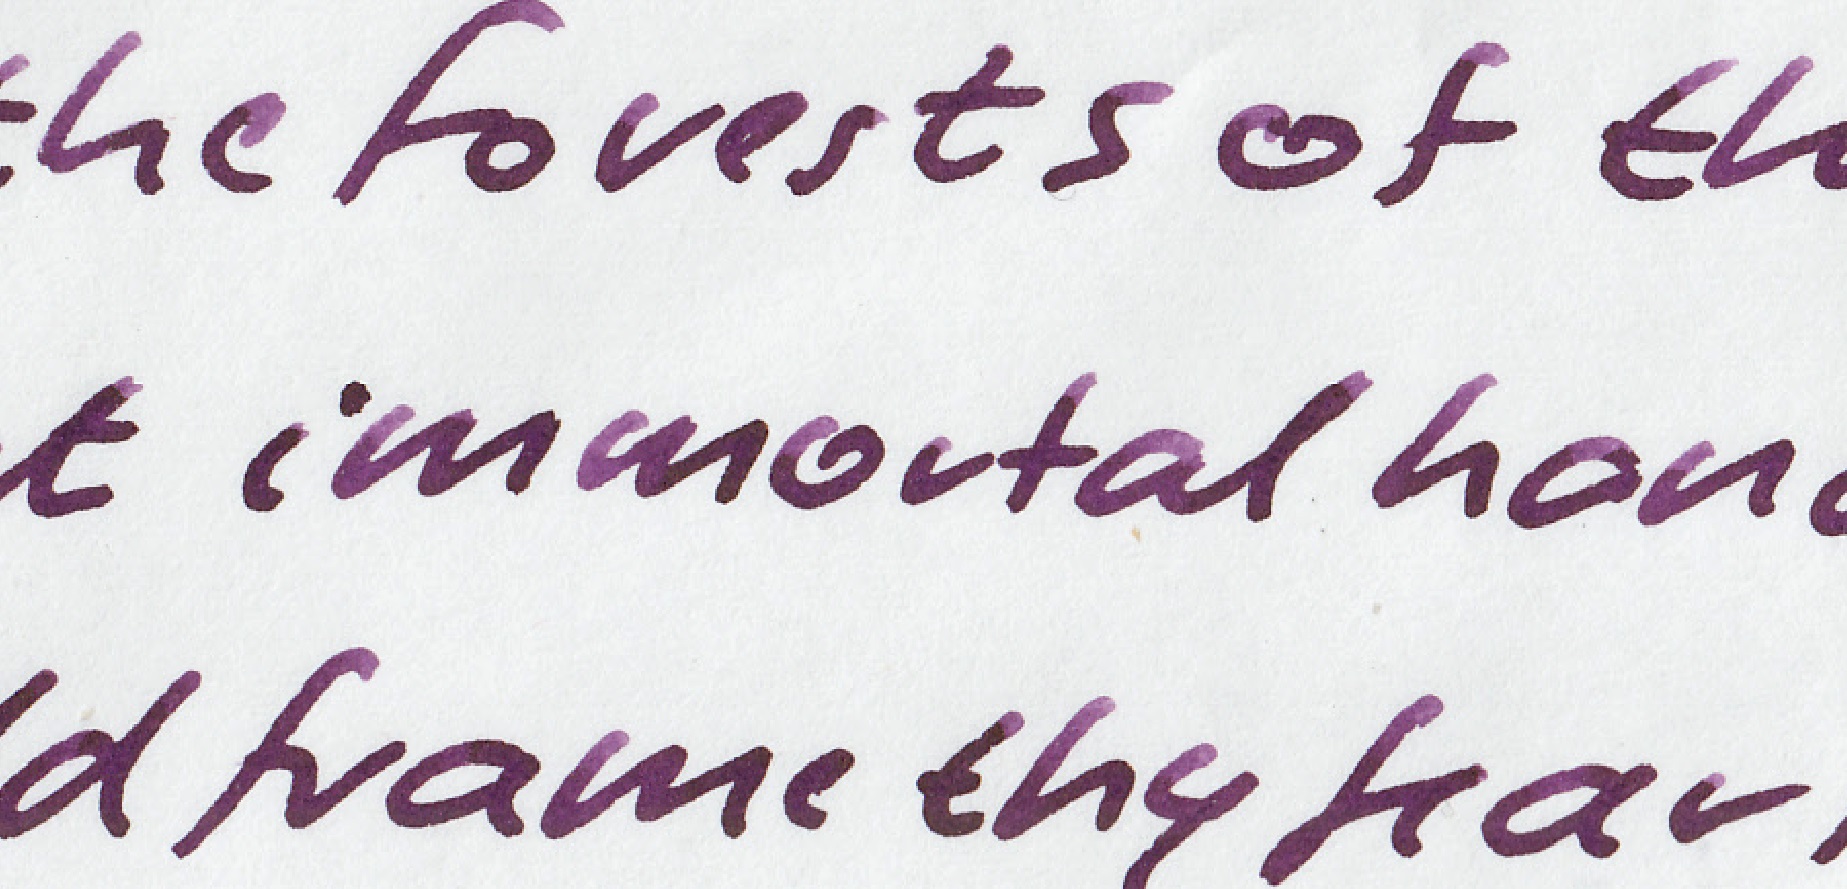 the forests of th
t immortal han
ld frame thy fear